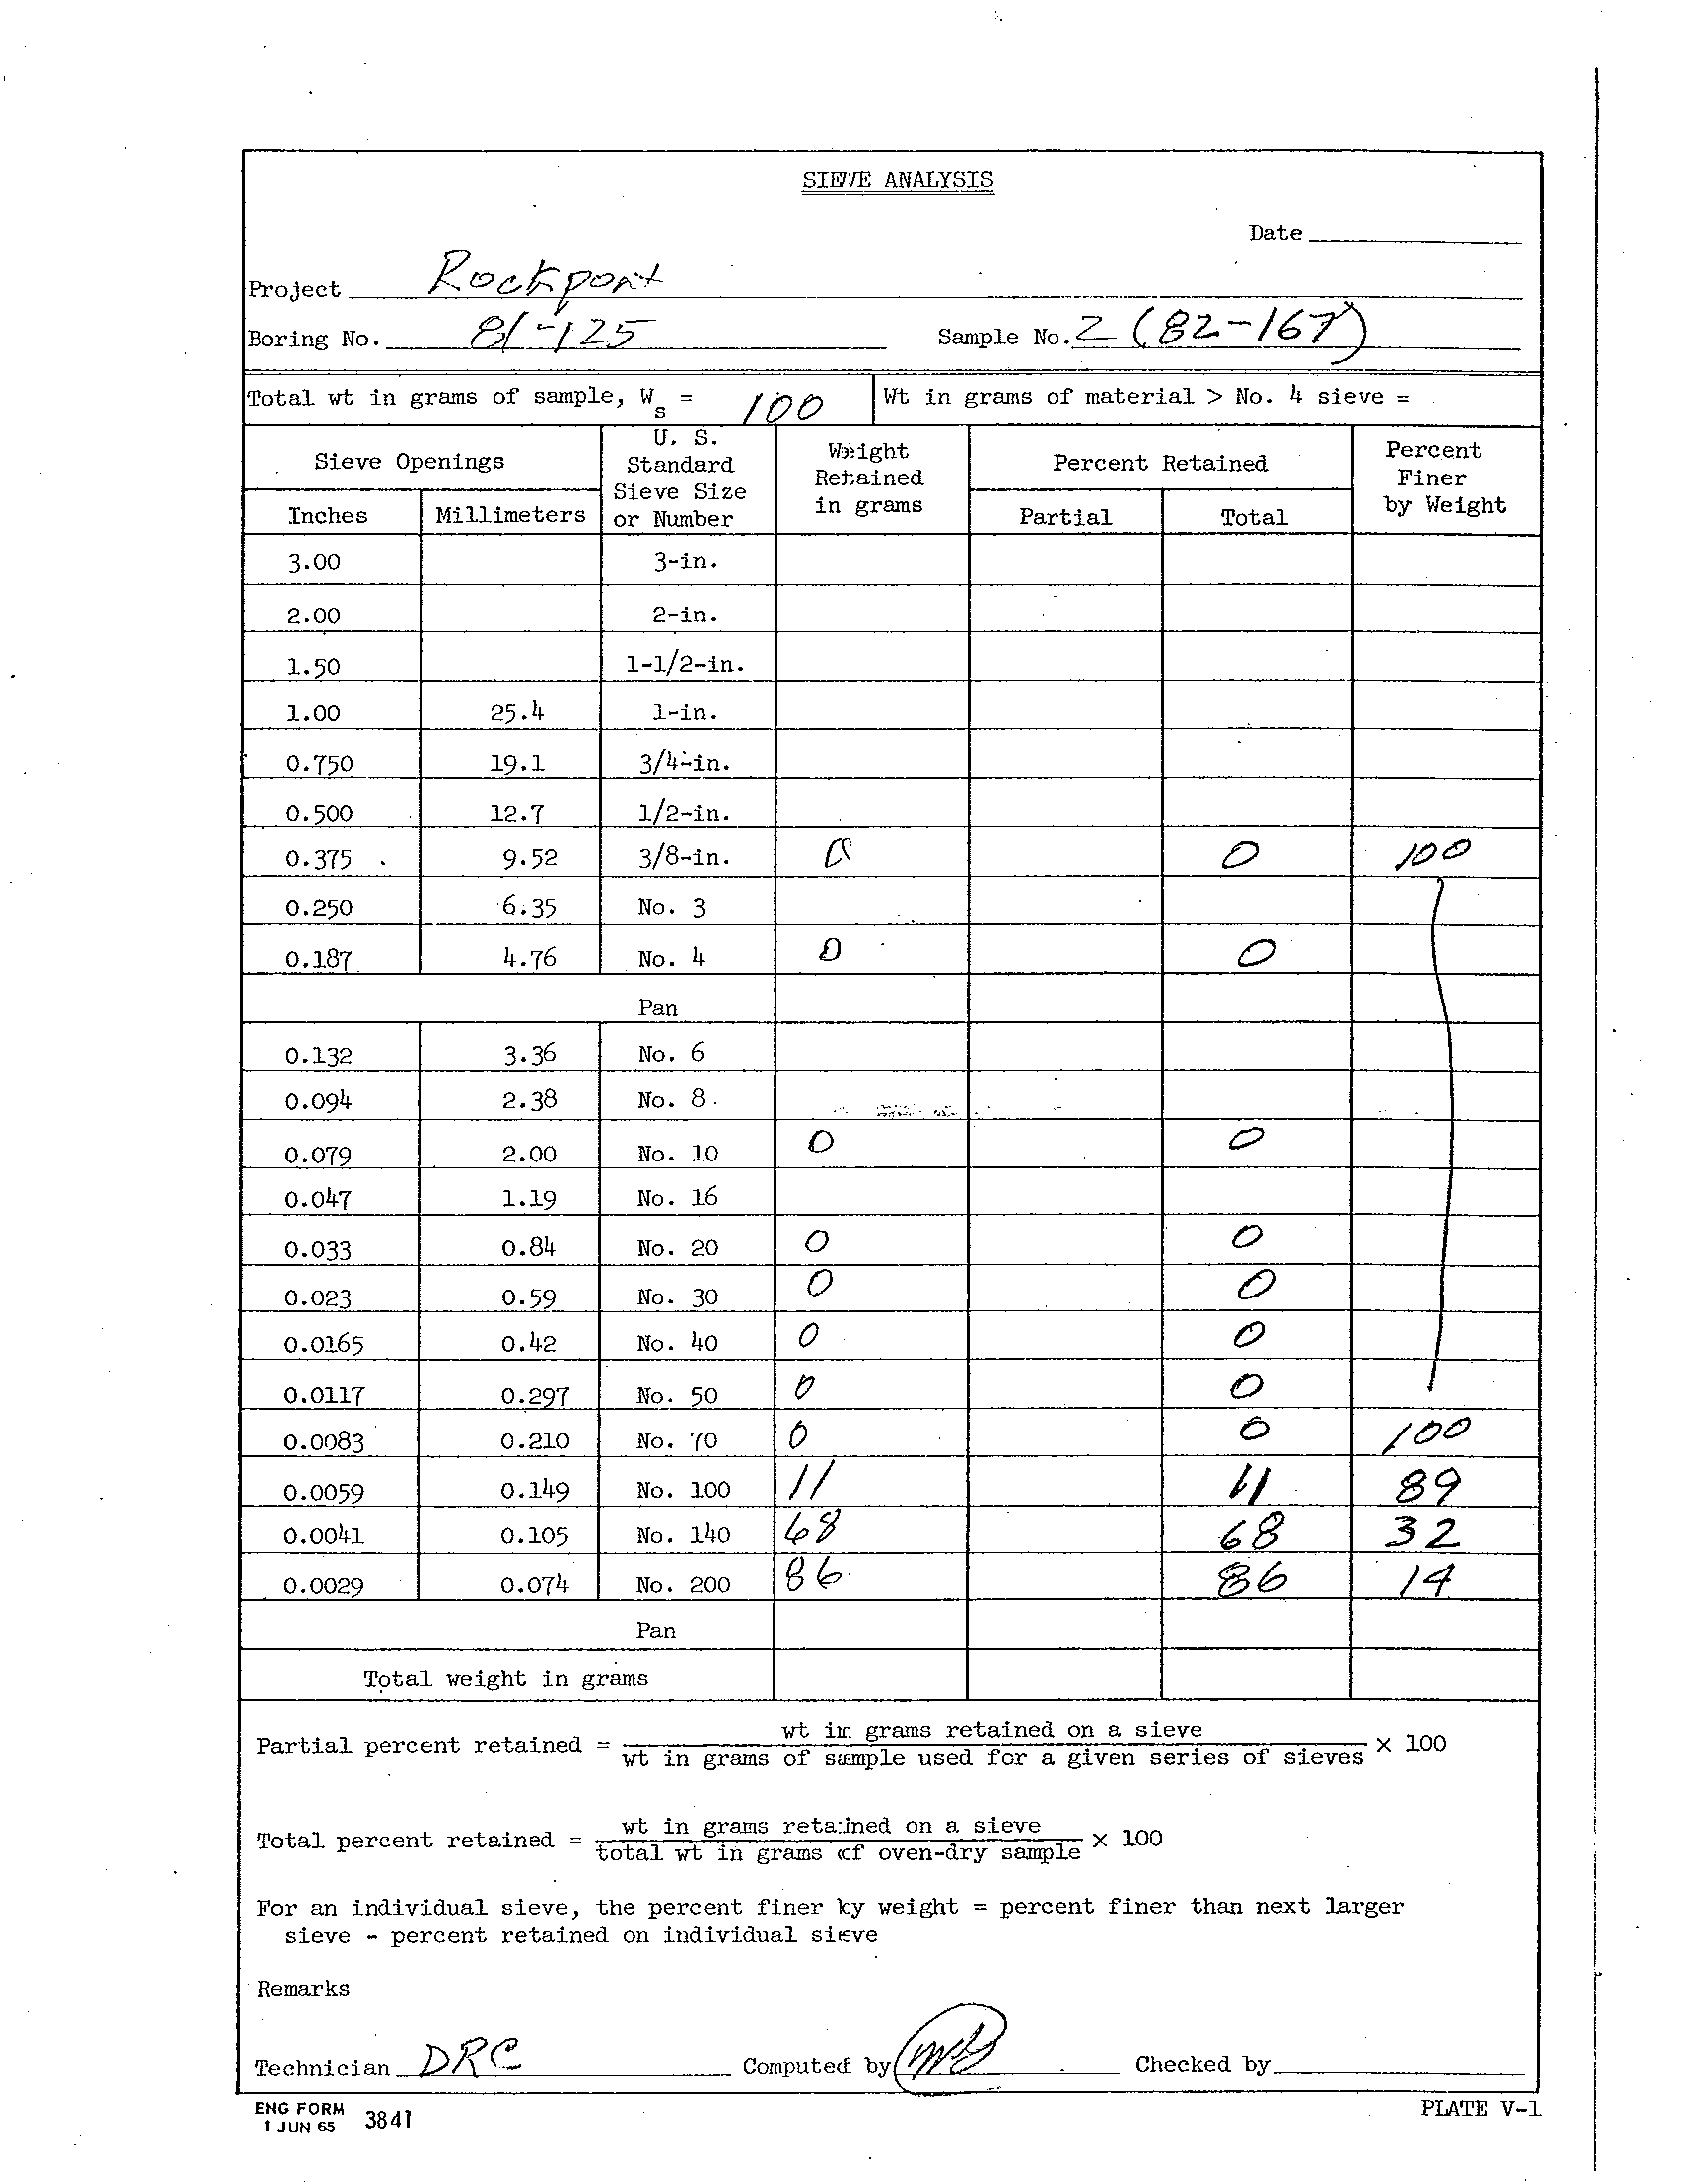 SIEVE ANALYSIS
Date
Project Rockport
Boring No. 81-125 Sample No. 2 (82-167)
Total wt in grams of sample, Ws = 100 Wt in grams of material > No. 4 sieve =
Sieve Openings U. S. Standard Sieve Size or Number Weight Retained in grams Percent Retained Percent Finer by Weight
Inches Millimeters Partial Total
3.00 3-in.
2.00 2-in.
1.50 1-1/2-in.
1.00 25.4 1-in.
0.750 19.1 3/4-in.
0.500 12.7 1/2-in.
0.375 9.52 3/8-in. 0 0 100
0.250 6.35 No. 3
0.187 4.76 No. 4 0 0
Pan
0.132 3.36 No. 6
0.094 2.38 No. 8
0.079 2.00 No. 10 0 0
0.047 1.19 No. 16
0.033 0.84 No. 20 0 0
0.023 0.59 No. 30 0 0
0.0165 0.42 No. 40 0 0
0.0117 0.297 No. 50 0 0
0.0083 0.210 No. 70 0 0 100
0.0059 0.149 No. 100 11 11 89
0.0041 0.105 No. 140 68 68 32
0.0029 0.074 No. 200 86 86 14
Pan
Total weight in grams
Partial percent retained = wt in grams retained on a sieve
wt in grams of sample used for a given series of sieves × 100
Total percent retained = wt in grams retained on a sieve
total wt in grams of oven-dry sample × 100
For an individual sieve, the percent finer by weight = percent finer than next larger
sieve - percent retained on individual sieve
Remarks
Technician DRC Computed by Checked by
ENG FORM 3841
1 JUN 65
PLATE V-1